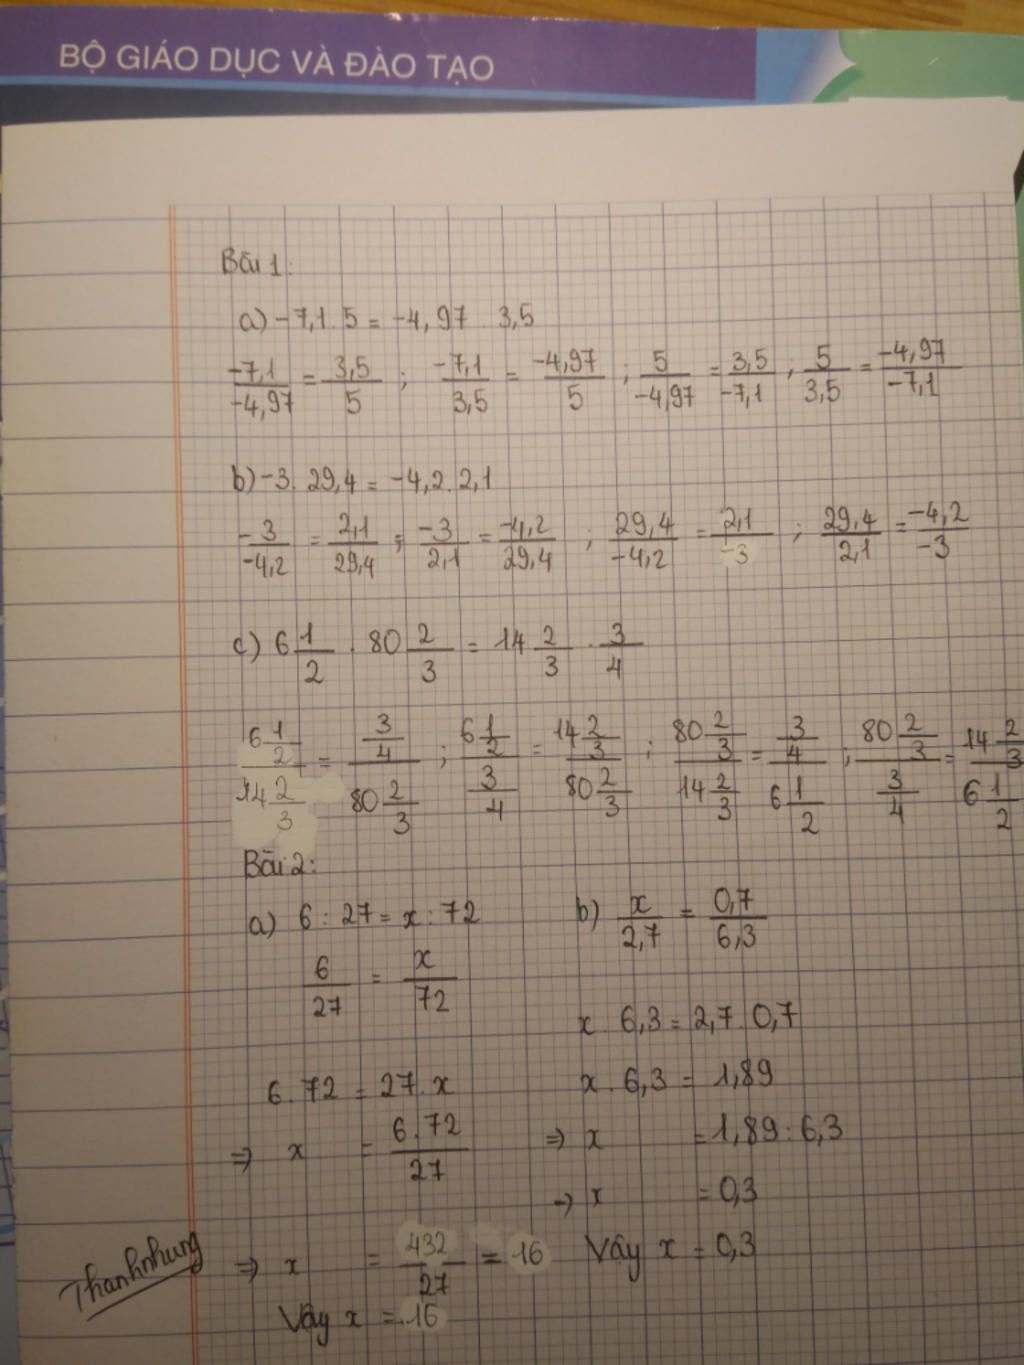 BỘ GIÁO DỤC VÀ ĐÀO TẠO
Bài 1:
a) -7,1 . 5 = -4,97 . 3,5
-7,1/-4,97 = 3,5/5 ; -7,1/3,5 = -4,97/5 ; 5/-4,97 = 3,5/-7,1 ; 5/3,5 = -4,97/-7,1
b) -3 . 29,4 = -4,2 . 2,1
-3/-4,2 = 2,1/29,4 ; -3/2,1 = -4,2/29,4 ; 29,4/-4,2 = 2,1/-3 ; 29,4/2,1 = -4,2/-3
c) 6 1/2 . 80 2/3 = 14 2/3 . 3/4
6 1/2 / 14 2/3 = 3/4 / 80 2/3 ; 6 1/2 / 3/4 = 14 2/3 / 80 2/3 ; 80 2/3 / 14 2/3 = 3/4 / 6 1/2 ; 80 2/3 / 3/4 = 14 2/3 / 6 1/2
Bài 2:
a) 6 : 27 = x : 72
6/27 = x/72
6 . 72 = 27 . x
=> x = 6.72/27
=> x = 432/27 = 16
Vậy x = 16
b) x/2,7 = 0,7/6,3
x . 6,3 = 2,7 . 0,7
x . 6,3 = 1,89
=> x = 1,89 : 6,3
=> x = 0,3
Vậy x = 0,3
Thanhnhung